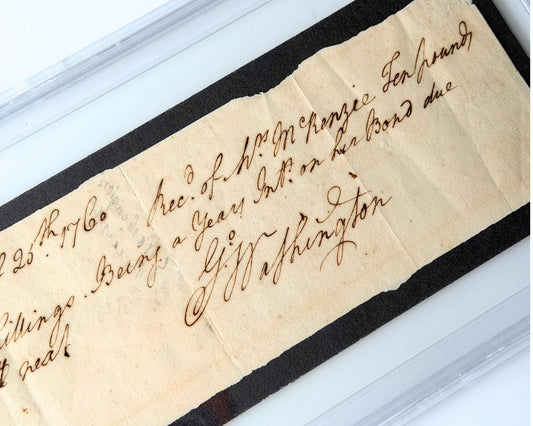 25.th 1760 Rec.d of Mrs. McKenzie Ten pounds
illings. Being a Years Int.t on her Bond due
next
G.o Washington